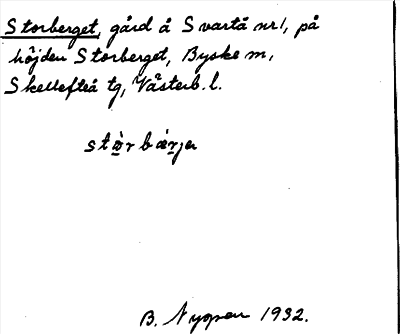 Storberget, gård å Svartå nr 1, på
höjden Storberget, Byske sn,
Skellefteå tg, Västerb. l.
stɑ̀r bærjɐ
B. Nygren 1932.